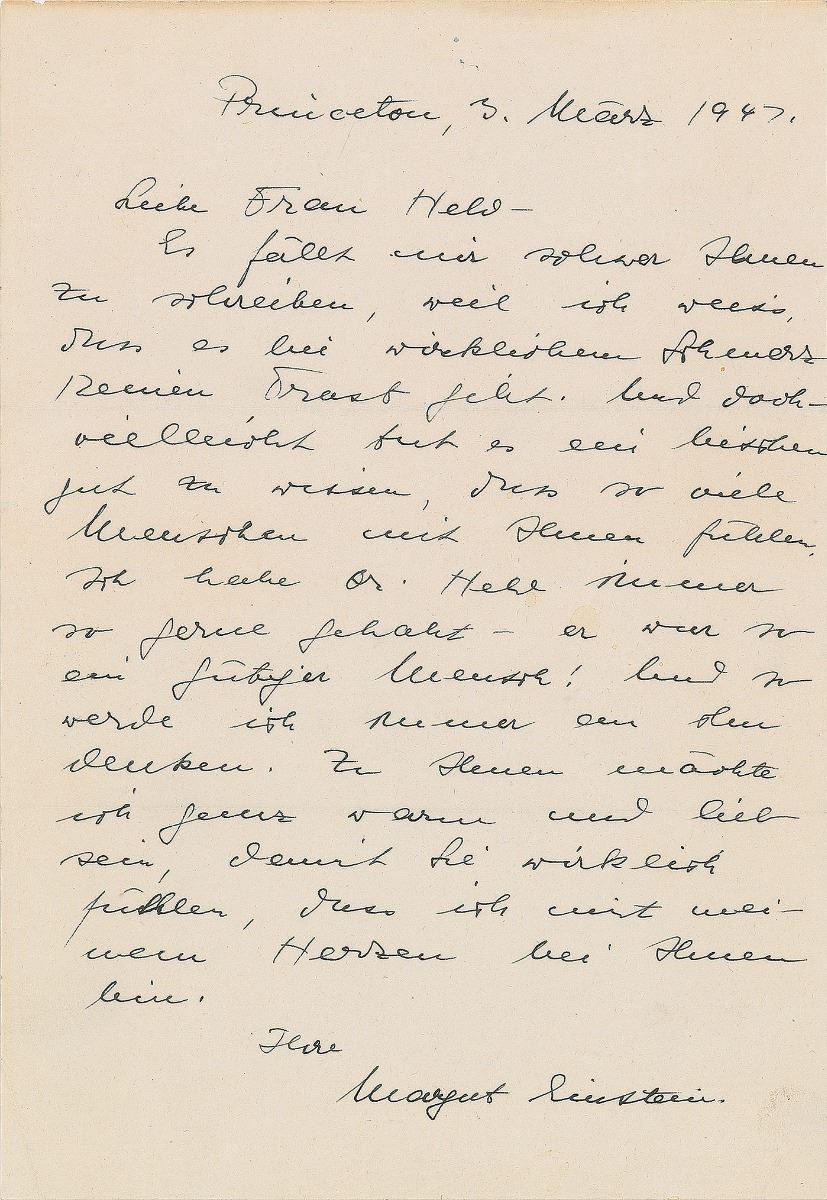 Princeton, 3. März 1947.
Liebe Frau Held –
Es fällt mir schwer Ihnen
zu schreiben, weil ich weiss,
dass es bei wirklichem Schmerz
keinen Trost gibt. Und doch –
vielleicht tut es ein bischen
gut zu wissen, dass so viele
Menschen mit Ihnen fühlen.
Ich habe Dr. Held immer
so gerne gehabt – er war so
ein gütiger Mensch! Und so
werde ich immer an ihn
denken. Zu Ihnen möchte
ich ganz warm und lieb
sein, damit Sie wirklich
fühlen, dass ich mit mei-
nem Herzen bei Ihnen
bin.
Ihre
Margot Einstein.